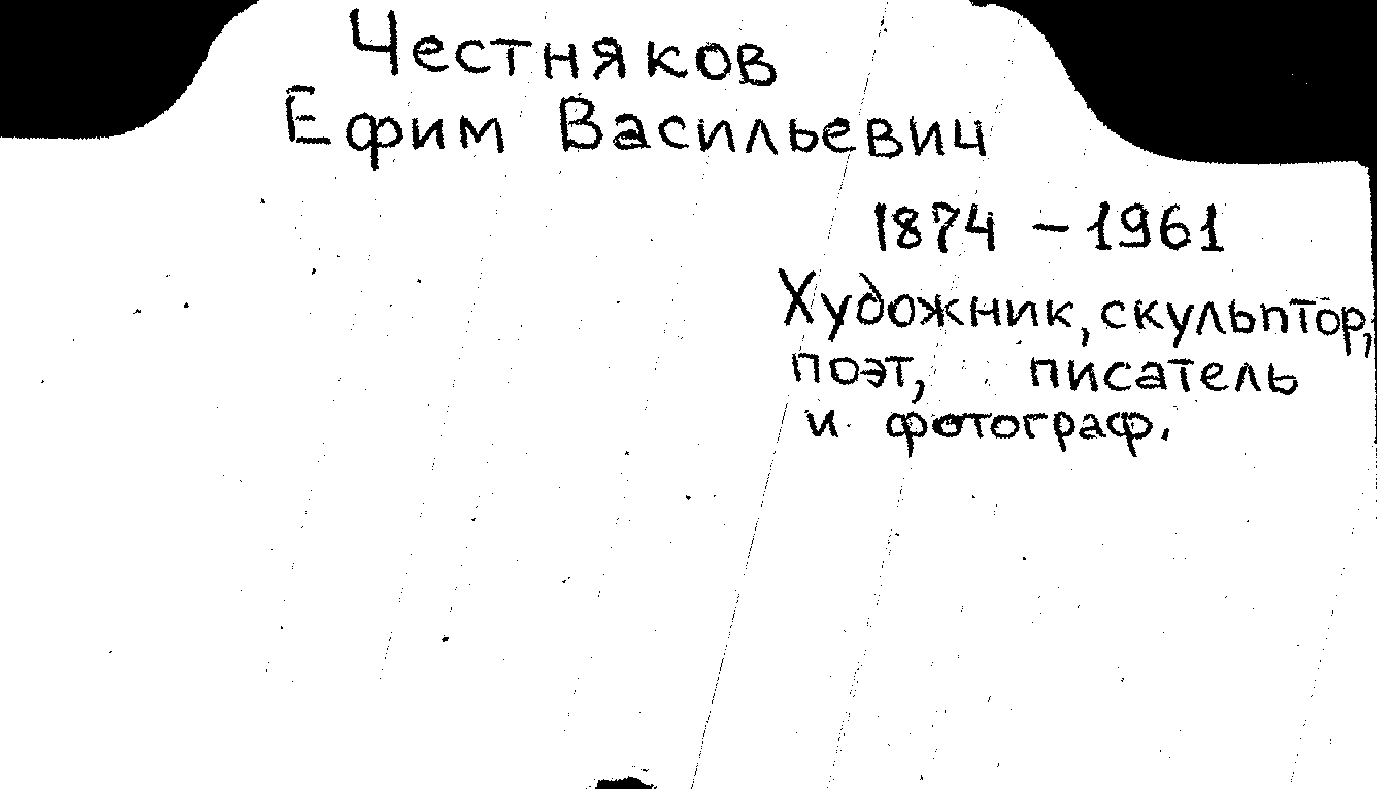 Честняков
Ефим Васильевич
1874 - 1961
Художник, скульптор,
поэт, писатель
и фотограф.